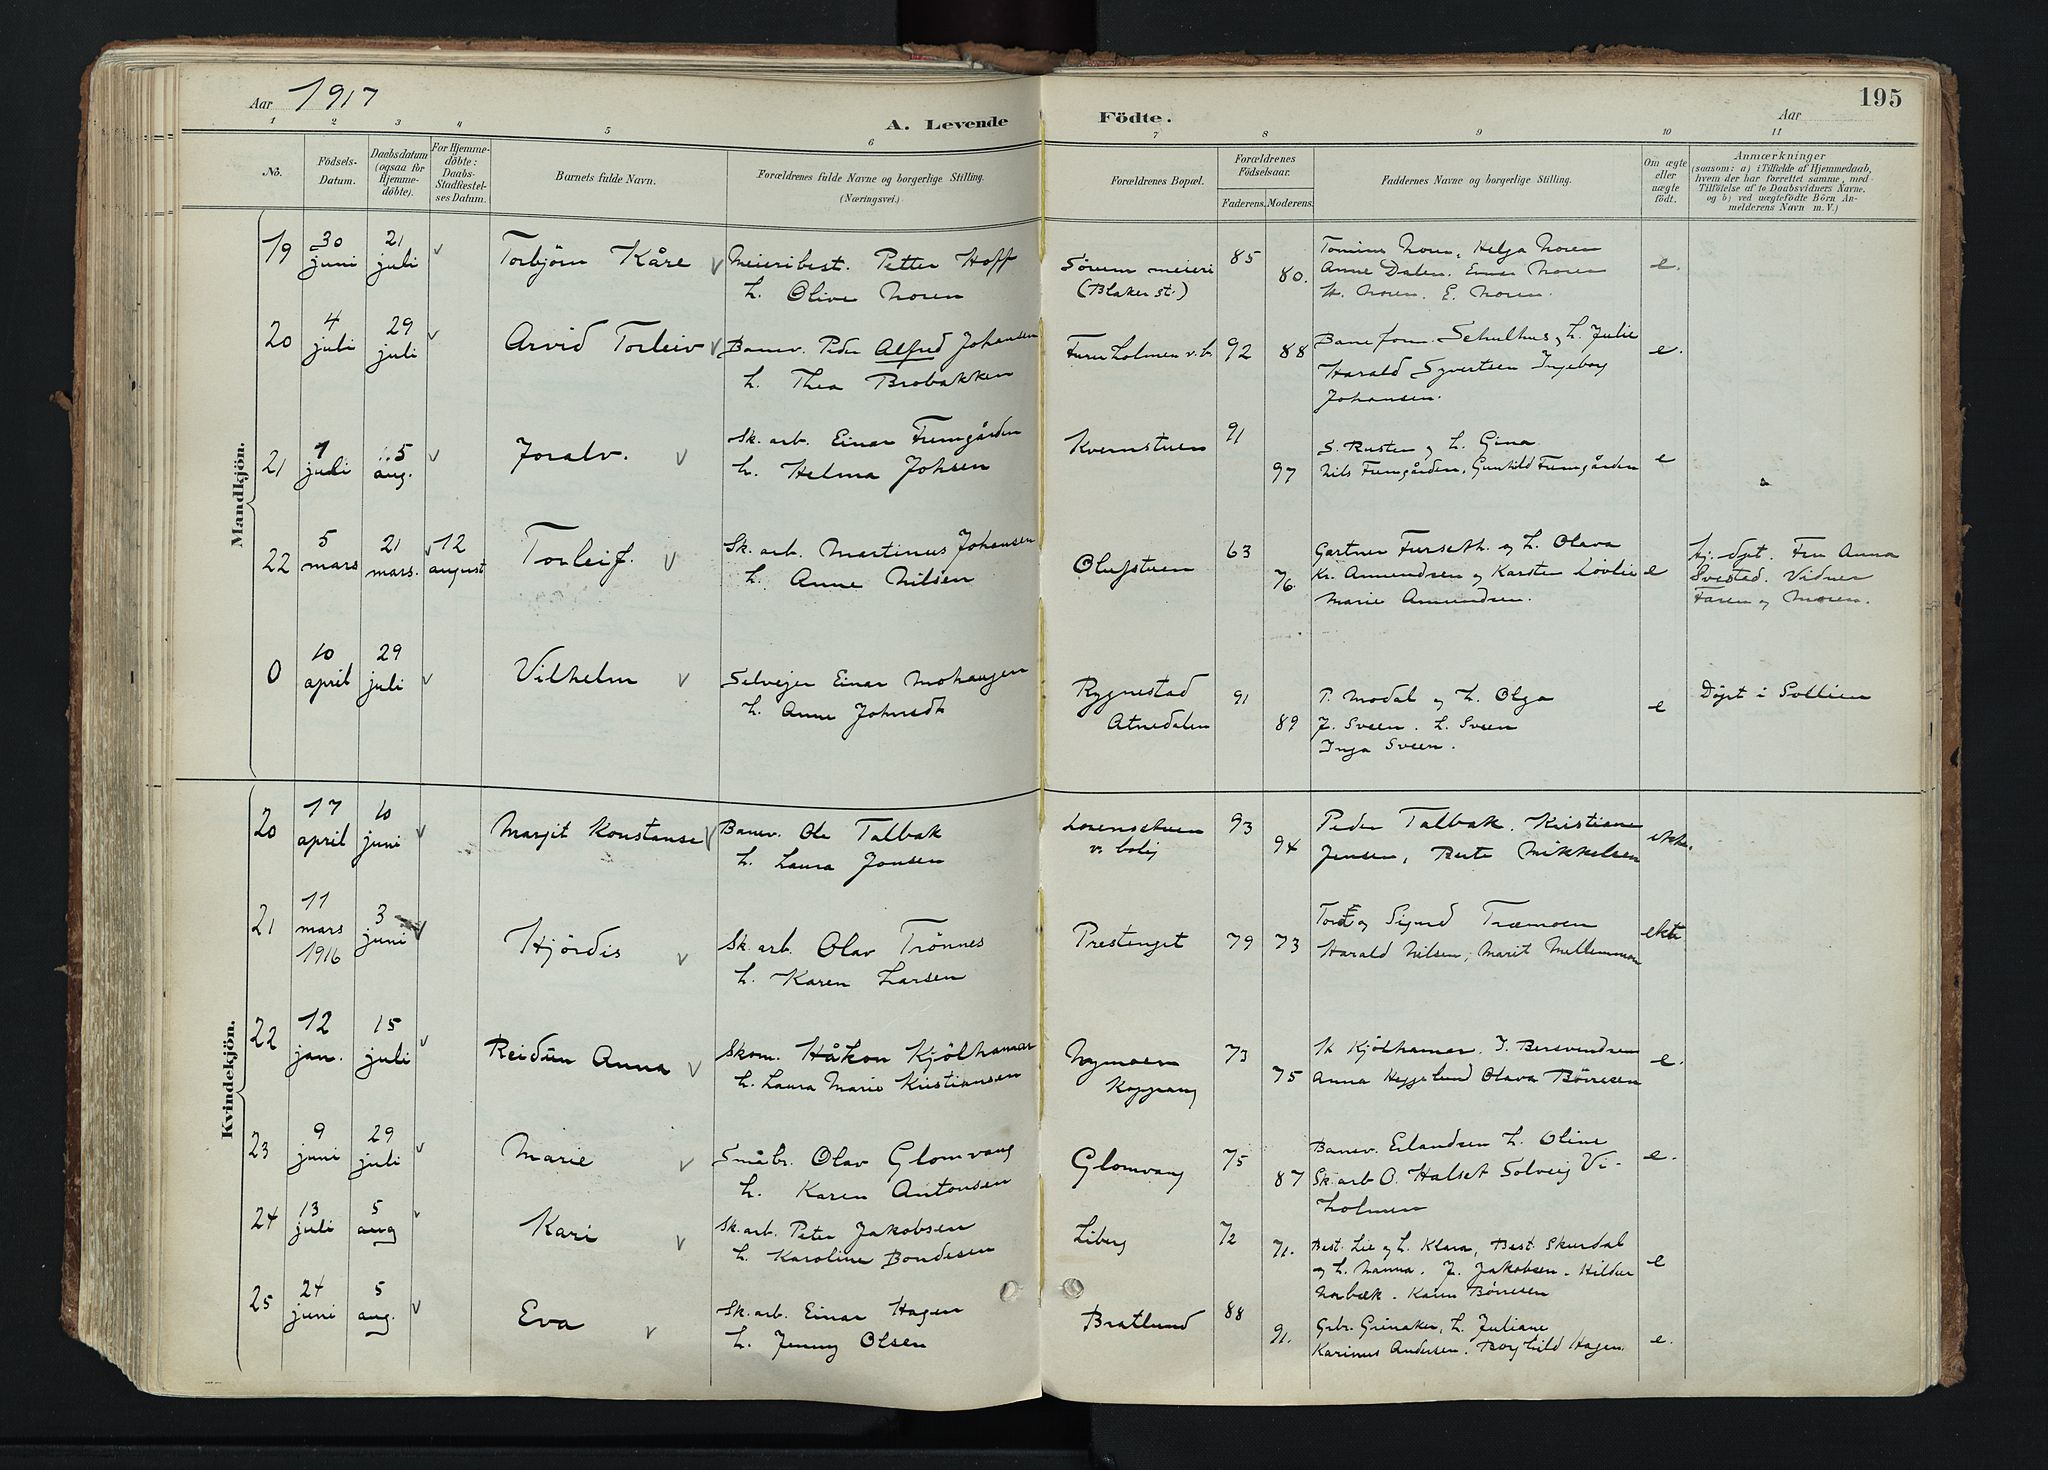 Aar 1917
A. Levende Födte.
Aar
195
1 2 3 4 5 6 7 8 9 10 11
No.
Födsels-
Datum.
Daabsdatum
(ogsaa for
Hjemme-
döbte).
For Hjemme-
döbte:
Daabs-
Stadfestel-
ses Datum.
Barnets fulde Navn.
Forældrenes fulde Navne og borgerlige Stilling.
(Næringsvei.)
Forældrenes Bopæl.
Forældrenes
Födselsaar.
Faderens. Moderens.
Faddernes Navne og borgerlige Stilling.
Om ægte
eller
uægte
födt.
Anmærkninger
(saasom: a) i Tilfælde af Hjemmedaab,
hvem der har forrettet samme, med
Tilföielse af to Daabsvidners Navne.
og b) ved uægtefödte Börn An-
melderens Navn m. V.)
Mandkjön.
19
30
juni
21
juli
Torbjörn Kåre
Meieribest. Petter Hoff
h. Olive Noren
Sörum meieri
(Blaker st.)
85
80.
Noren, Helga Noren
Anne Dalen. Noren
H. Noren. E. Noren.
e.
20
4
juli
29
juli
Arvid Torleiv
Banev. Peder Alfred Johansen
h. Thea Brobakken
Furuholmen v. b.
92
88
Baneform. Schulhus, h. Julie
Harald Syvertsen Ingeborg
Johansen.
e.
21
7
juli
15
aug.
Joralv.
Sk. arb. Einar Fremgården
h. Helma Johsen
Kvernstuen
91
97
S. Rusten og h. Gina.
Nils Fremgården, Gunhild Fremgården
e
22
5
mars
21
mars.
12
august
Torleif.
Sk. arb. Martinus Johansen
h. Anne Nilsen
Olufstuen
63
76.
Gartner Furseth. og h. Olava
Kr. Amundsen og Karsten Lövlie
Marie Amundsen.
e
Hj. döpt. Fru Anna
Svestad. Vidner
Faren og Moren.
0
10
april
29
juli
Vilhelm
Selvejer Einar Mohaugen
h. Anne Johnsdt
Rygnestad
Atnedalen
91
89
P. Modal og h. Olga
J. Sveen. L. Sveen
Inga Sveen.
e
Döpt i Sollien
Kvindekjön.
20
17
april
10
juni
Margit Konstanse
Banev. Ole Talbak
h. Laura Jonsen
Lorenstuen
v. bolig
93
94
Peder Talbak. Kristiane
Jensen, Berte Mikkelsen
ekte.
21
11
mars
1916
3
juni
Hjördis
Sk. arb. Olav Trönnes
h. Karen Larsen
Prestenget
79
73
Tord og Sigurd Træmoen
Harald Nilsen, Marit Mellemmoen
ekte
22
12
jan.
15
juli
Reidun Anna
Skom. Håkon Kjölhamar
h. Laura Marie Kristiansen
Nymoen
Koppang
73
75
H. Kjölhamar. I. Bersvendsen
Anna Heggelund Olava Börresen
e.
23
9
juni
29
juli
Marie
Småbr. Olav Glomvang
h. Karen Antonsen
Glomvang
75
87
Banev. Erlandsen h. Oline
Sk. arb O. Halset Solveig Vi-
holmen
e.
24
13
juli
5
aug
Kari
Sk. arb. Peter Jakobsen
h. Karoline Bondesen
Liberg
72
71.
Best. Lie og h. Klara, Best. Skurdal
og h. Nanna. J. Jakobsen. Hildur
Norbæk. Karen Börresen
e
25
24
juni
5
aug.
Eva
Sk. arb. Einar Hagen
h. Jenny Olsen
Bratlund
88
91.
Grbr. Grinaker, h. Juliane
Karinus Andersen. Borghild Hagen.
e.